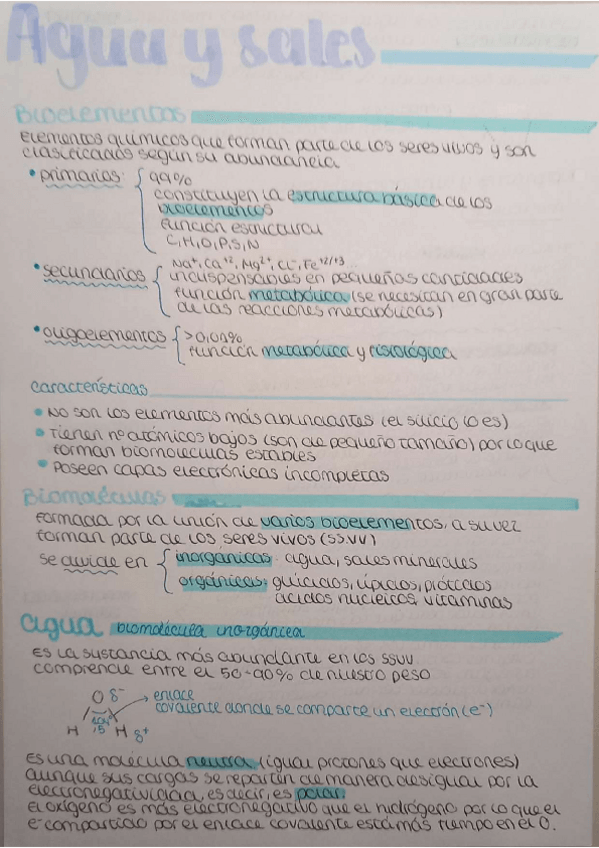 Agua y sales
Bioelementos
Elementos químicos que forman parte de los seres vivos y son
clasificados según su abundancia
• primarios: { 99%
constituyen la estructura básica de los
bioelementos
función estructural
C, H, O, P, S, N
• secundarios { Na⁺, Ca⁺², Mg²⁺, Cl⁻, Fe⁺²/⁺³...
indispensables en pequeñas cantidades
función metabólica (se necesitan en gran parte
de las reacciones metabólicas)
• oligoelementos { >0,01%
función metabólica y fisiológica
características
• NO son los elementos más abundantes (el silicio lo es)
• Tienen nº atómicos bajos (son de pequeño tamaño) por lo que
forman biomoléculas estables
• Poseen capas electrónicas incompletas
Biomoléculas
Formada por la unión de varios bioelementos, a su vez
forman parte de los seres vivos (SS.VV)
Se divide en { inorgánicas: agua, sales minerales
orgánicas: glúcidos, lípidos, prótidos
ácidos nucleicos, vitaminas
agua biomolécula inorgánica
Es la sustancia más abundante en los SSVV
comprende entre el 50-90% de nuestro peso
O δ⁻ → enlace
covalente donde se comparte un electrón (e⁻)
H H δ⁺
Es una molécula neutra (igual protones que electrones)
aunque sus cargas se reparten de manera desigual por la
electronegatividad, es decir, es polar.
el oxígeno es más electronegativo que el hidrógeno por lo que el
e⁻ compartido por el enlace covalente está más tiempo en el O.